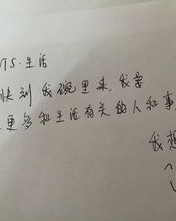 75.生活
快到我碗里来,我要
更多和生活有关的人和事
我想